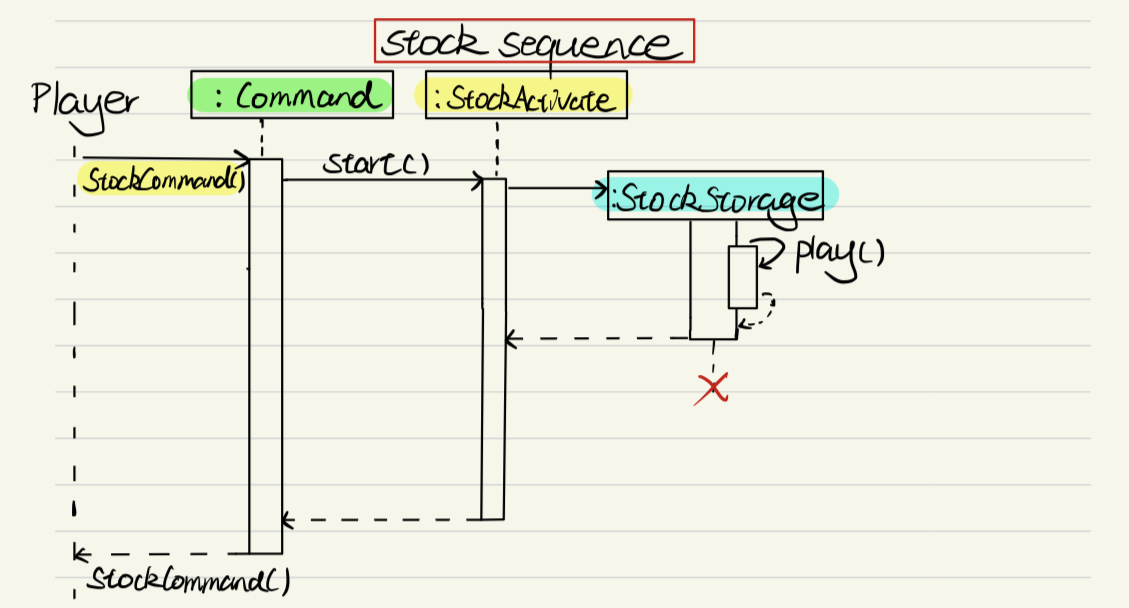 Stock sequence
Player
: Command
:StockActivate
StockCommand()
start()
:StockStorage
play()
StockCommand()